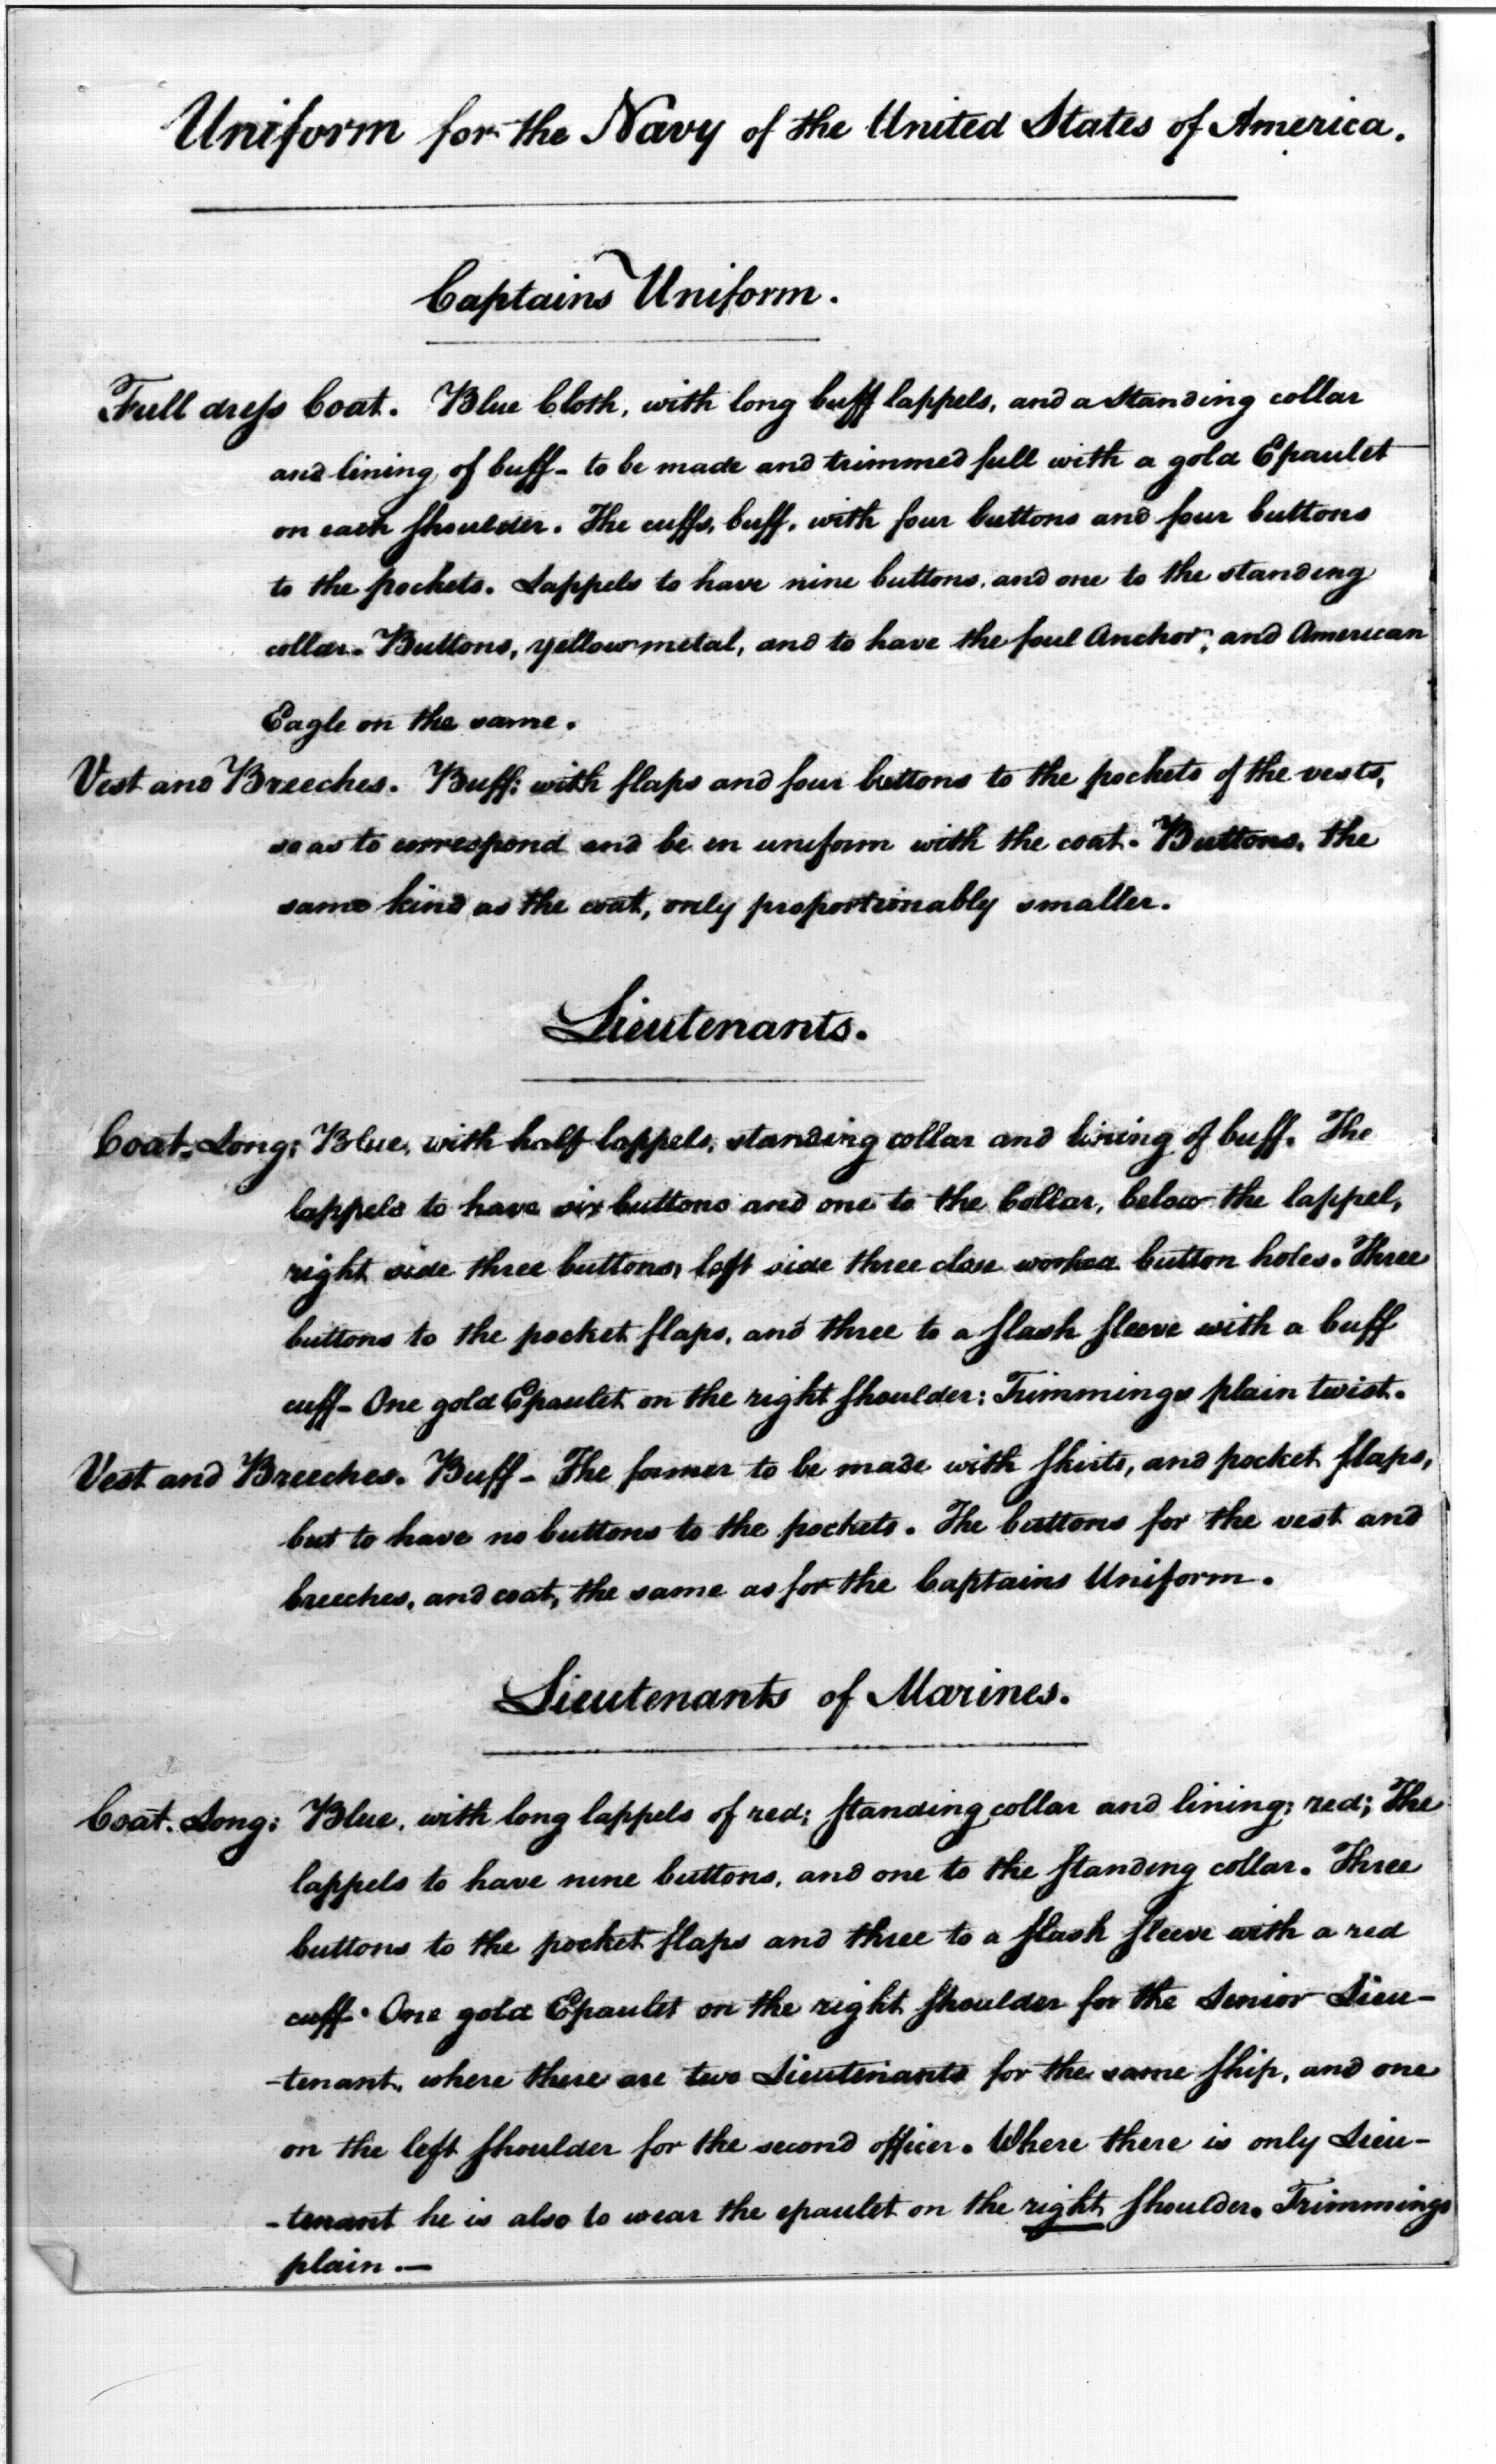 Uniform for the Navy of the United States of America.
Captains Uniform.
Full dress Coat. Blue Cloth, with long buff lappels, and a standing collar
and lining of buff - to be made and trimmed full with a gold Epaulet
on each shoulder. The cuffs, buff, with four buttons and four buttons
to the pockets. Lappels to have nine buttons, and one to the standing
collar. Buttons, yellow metal, and to have the foul Anchor, and American
Eagle on the same.
Vest and Breeches. Buff: with flaps and four buttons to the pockets of the vests,
so as to correspond and be in uniform with the coat. Buttons, the
same kind as the coat, only proportionably smaller.
Lieutenants.
Coat. Long; Blue, with half lappels, standing collar and lining of buff. The
lappels to have six buttons and one to the Collar, below the lappel,
right side three buttons, left side three close worked button holes. Three
buttons to the pocket flaps, and three to a slash sleeve with a buff
cuff - One gold Epaulet on the right shoulder: Trimmings plain twist.
Vest and Breeches. Buff - The former to be made with skirts, and pocket flaps,
but to have no buttons to the pockets. The buttons for the vest and
breeches, and coat, the same as for the Captains Uniform.
Lieutenants of Marines.
Coat. Long: Blue, with long lappels of red; standing collar and lining; red; The
lappels to have nine buttons, and one to the standing collar. Three
buttons to the pocket flaps and three to a slash sleeve with a red
cuff. One gold Epaulet on the right shoulder for the Senior Lieu-
-tenant, where there are two Lieutenants for the same ship, and one
on the left shoulder for the second officer. Where there is only Lieu-
-tenant he is also to wear the epaulet on the right shoulder. Trimmings
plain. —